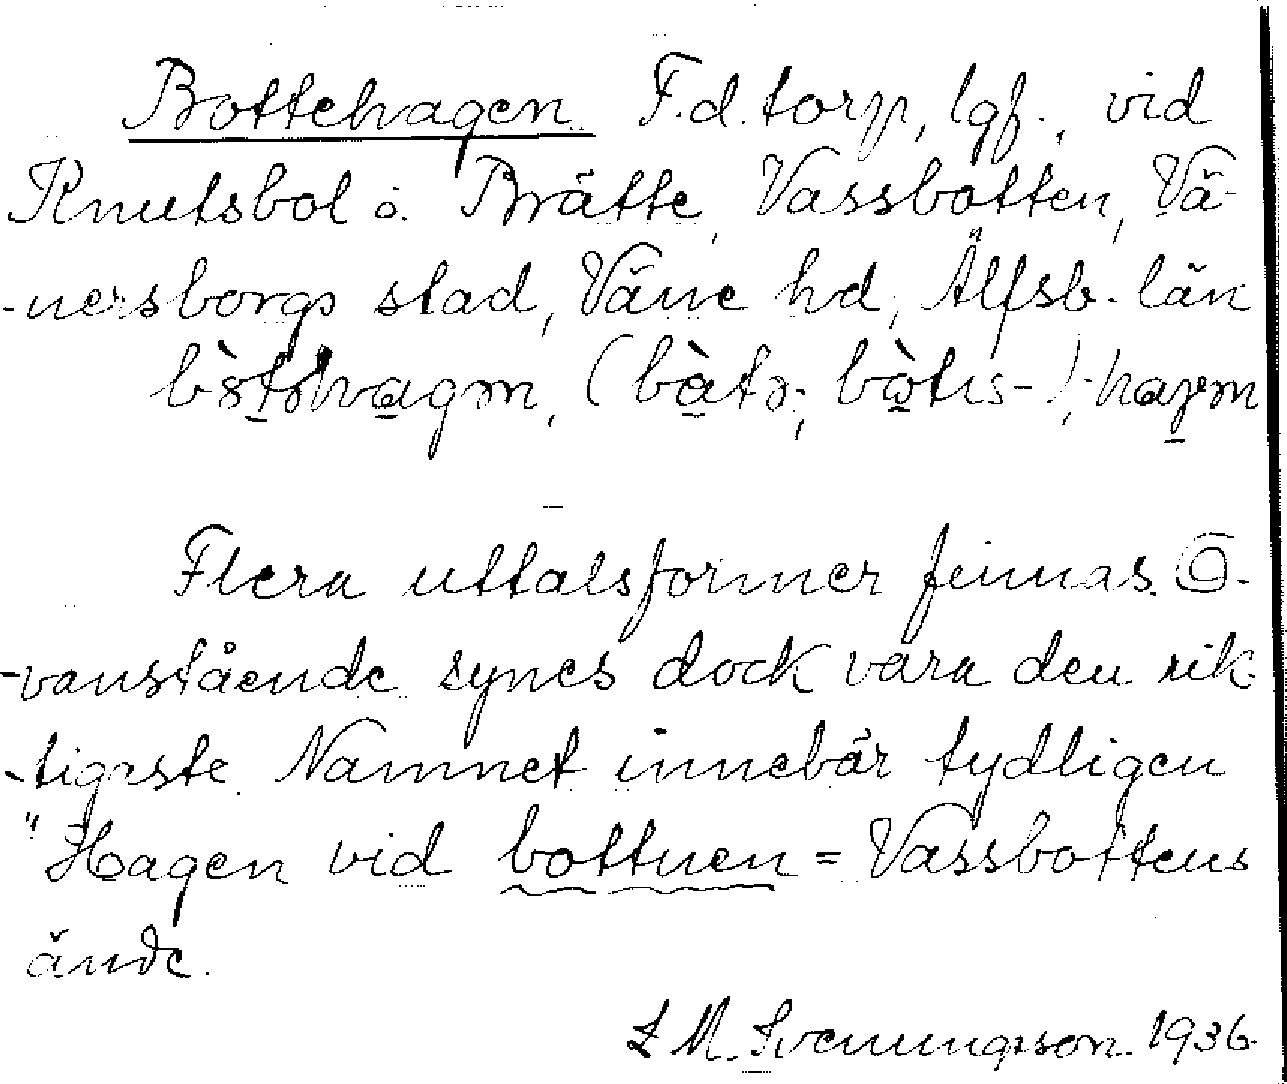 Bottehagen F.d. torp, lgf., vid
Knutsbol o. Brätte, Vassbotten, Vä-
-nersborgs stad, Väne hd, Älfsb. län
Flera uttalsformer finnas. O-
-vanstående synes dock vara den rik-
-tigaste. Namnet innebär tydligen
"Hagen vid bottnen = Vassbottens
ände.
Svenungsson. 1936.